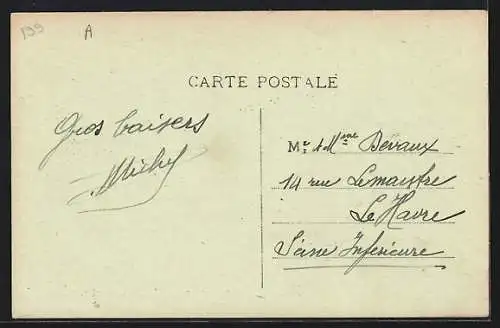 199
A
CARTE POSTALE
Gros baisers
Michy
Mr & Mme Devaux
14 rue Lemaistre
Le Havre
Seine Inférieure